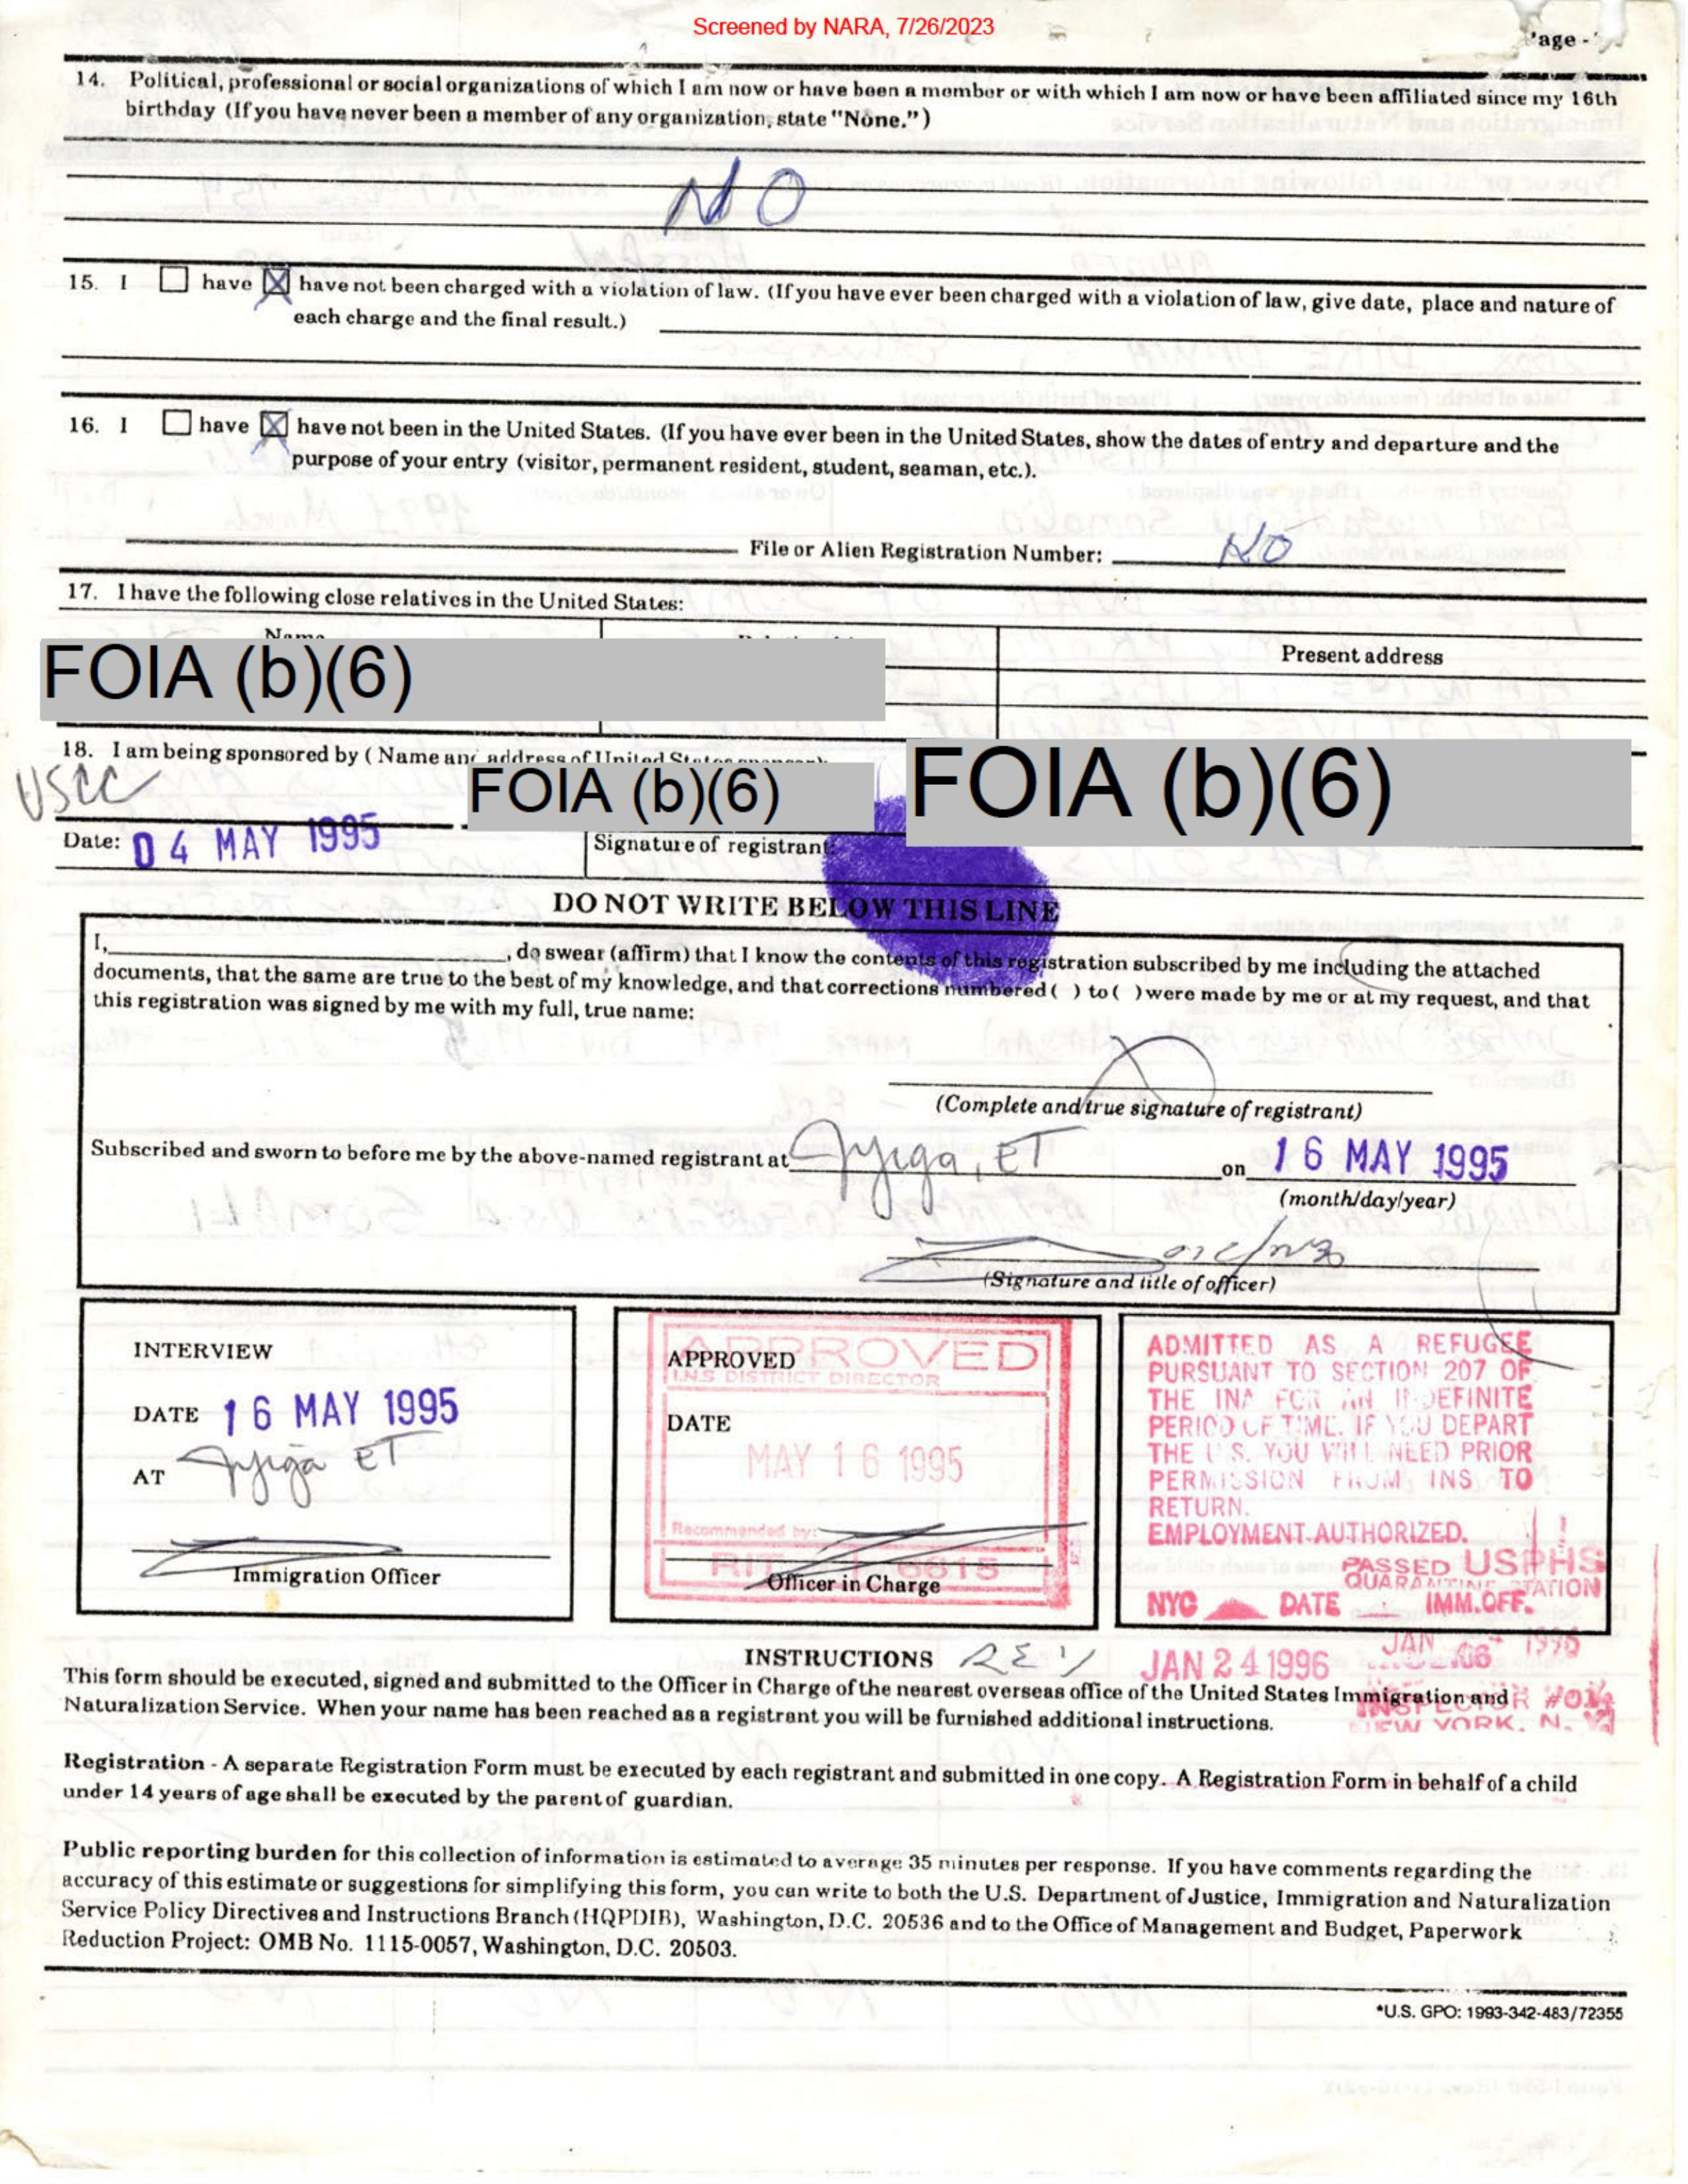 Screened by NARA, 7/26/2023
14. Political, professional or social organizations of which I am now or have been a member or with which I am now or have been affiliated since my 16th
birthday (If you have never been a member of any organization, state "None.")
NO
15. I have have not been charged with a violation of law. (If you have ever been charged with a violation of law, give date, place and nature of
each charge and the final result.)
16. I have have not been in the United States. (If you have ever been in the United States, show the dates of entry and departure and the
purpose of your entry (visitor, permanent resident, student, seaman, etc.).
File or Alien Registration Number: NO
17. I have the following close relatives in the United States:
Name
Present address
FOIA (b)(6)
18. I am being sponsored by (Name and address of United States
USCC
FOIA (b)(6)
FOIA (b)(6)
Date: 04 MAY 1995
Signature of registrant:
DO NOT WRITE BELOW THIS LINE
I, , do swear (affirm) that I know the contents of this registration subscribed by me including the attached
documents, that the same are true to the best of my knowledge, and that corrections numbered ( ) to ( ) were made by me or at my request, and that
this registration was signed by me with my full, true name:
(Complete and true signature of registrant)
Subscribed and sworn to before me by the above-named registrant at Jijiga, ET on 16 MAY 1995
(month/day/year)
(Signature and title of officer)
INTERVIEW
DATE 16 MAY 1995
AT Jijiga ET
Immigration Officer
APPROVED
APPROVED
I.N.S DISTRICT DIRECTOR
DATE
MAY 16 1995
Recommended by:
Officer in Charge
ADMITTED AS A REFUGEE
PURSUANT TO SECTION 207 OF
THE INA FOR AN INDEFINITE
PERIOD OF TIME. IF YOU DEPART
THE U.S. YOU WILL NEED PRIOR
PERMISSION FROM INS TO
RETURN.
EMPLOYMENT AUTHORIZED.
PASSED USPHS
QUARANTINE STATION
NYC DATE IMM.OFF.
JAN 24 1996
JAN 1996
INSPECTOR
NEW YORK, N.
INSTRUCTIONS
This form should be executed, signed and submitted to the Officer in Charge of the nearest overseas office of the United States Immigration and
Naturalization Service. When your name has been reached as a registrant you will be furnished additional instructions.
Registration - A separate Registration Form must be executed by each registrant and submitted in one copy. A Registration Form in behalf of a child
under 14 years of age shall be executed by the parent of guardian.
Public reporting burden for this collection of information is estimated to average 35 minutes per response. If you have comments regarding the
accuracy of this estimate or suggestions for simplifying this form, you can write to both the U.S. Department of Justice, Immigration and Naturalization
Service Policy Directives and Instructions Branch (HQPDIB), Washington, D.C. 20536 and to the Office of Management and Budget, Paperwork
Reduction Project: OMB No. 1115-0057, Washington, D.C. 20503.
*U.S. GPO: 1993-342-483/72355